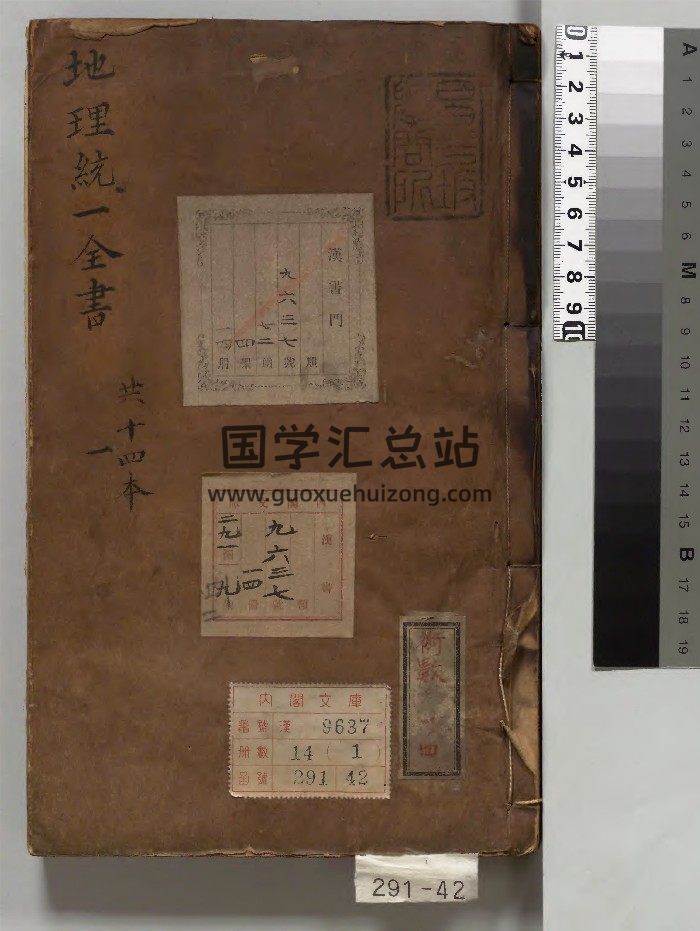 地理統一全書
共十四本
一
漢書門
九六三七
七二
四
一四
類
號
凾
架
册
国学汇总站
www.guoxuehuizong.com
漢書
九六三七
一四
二九一
術數
内閣文庫
番號 漢 9637
冊數 14 ( 1 )
函號 291 42
291-42
0 1 2 3 4 5 6 7 8 9 10
A 1 2 3 4 5 6 M 8 9 10 11 12 13 14 15 B 17 18 19